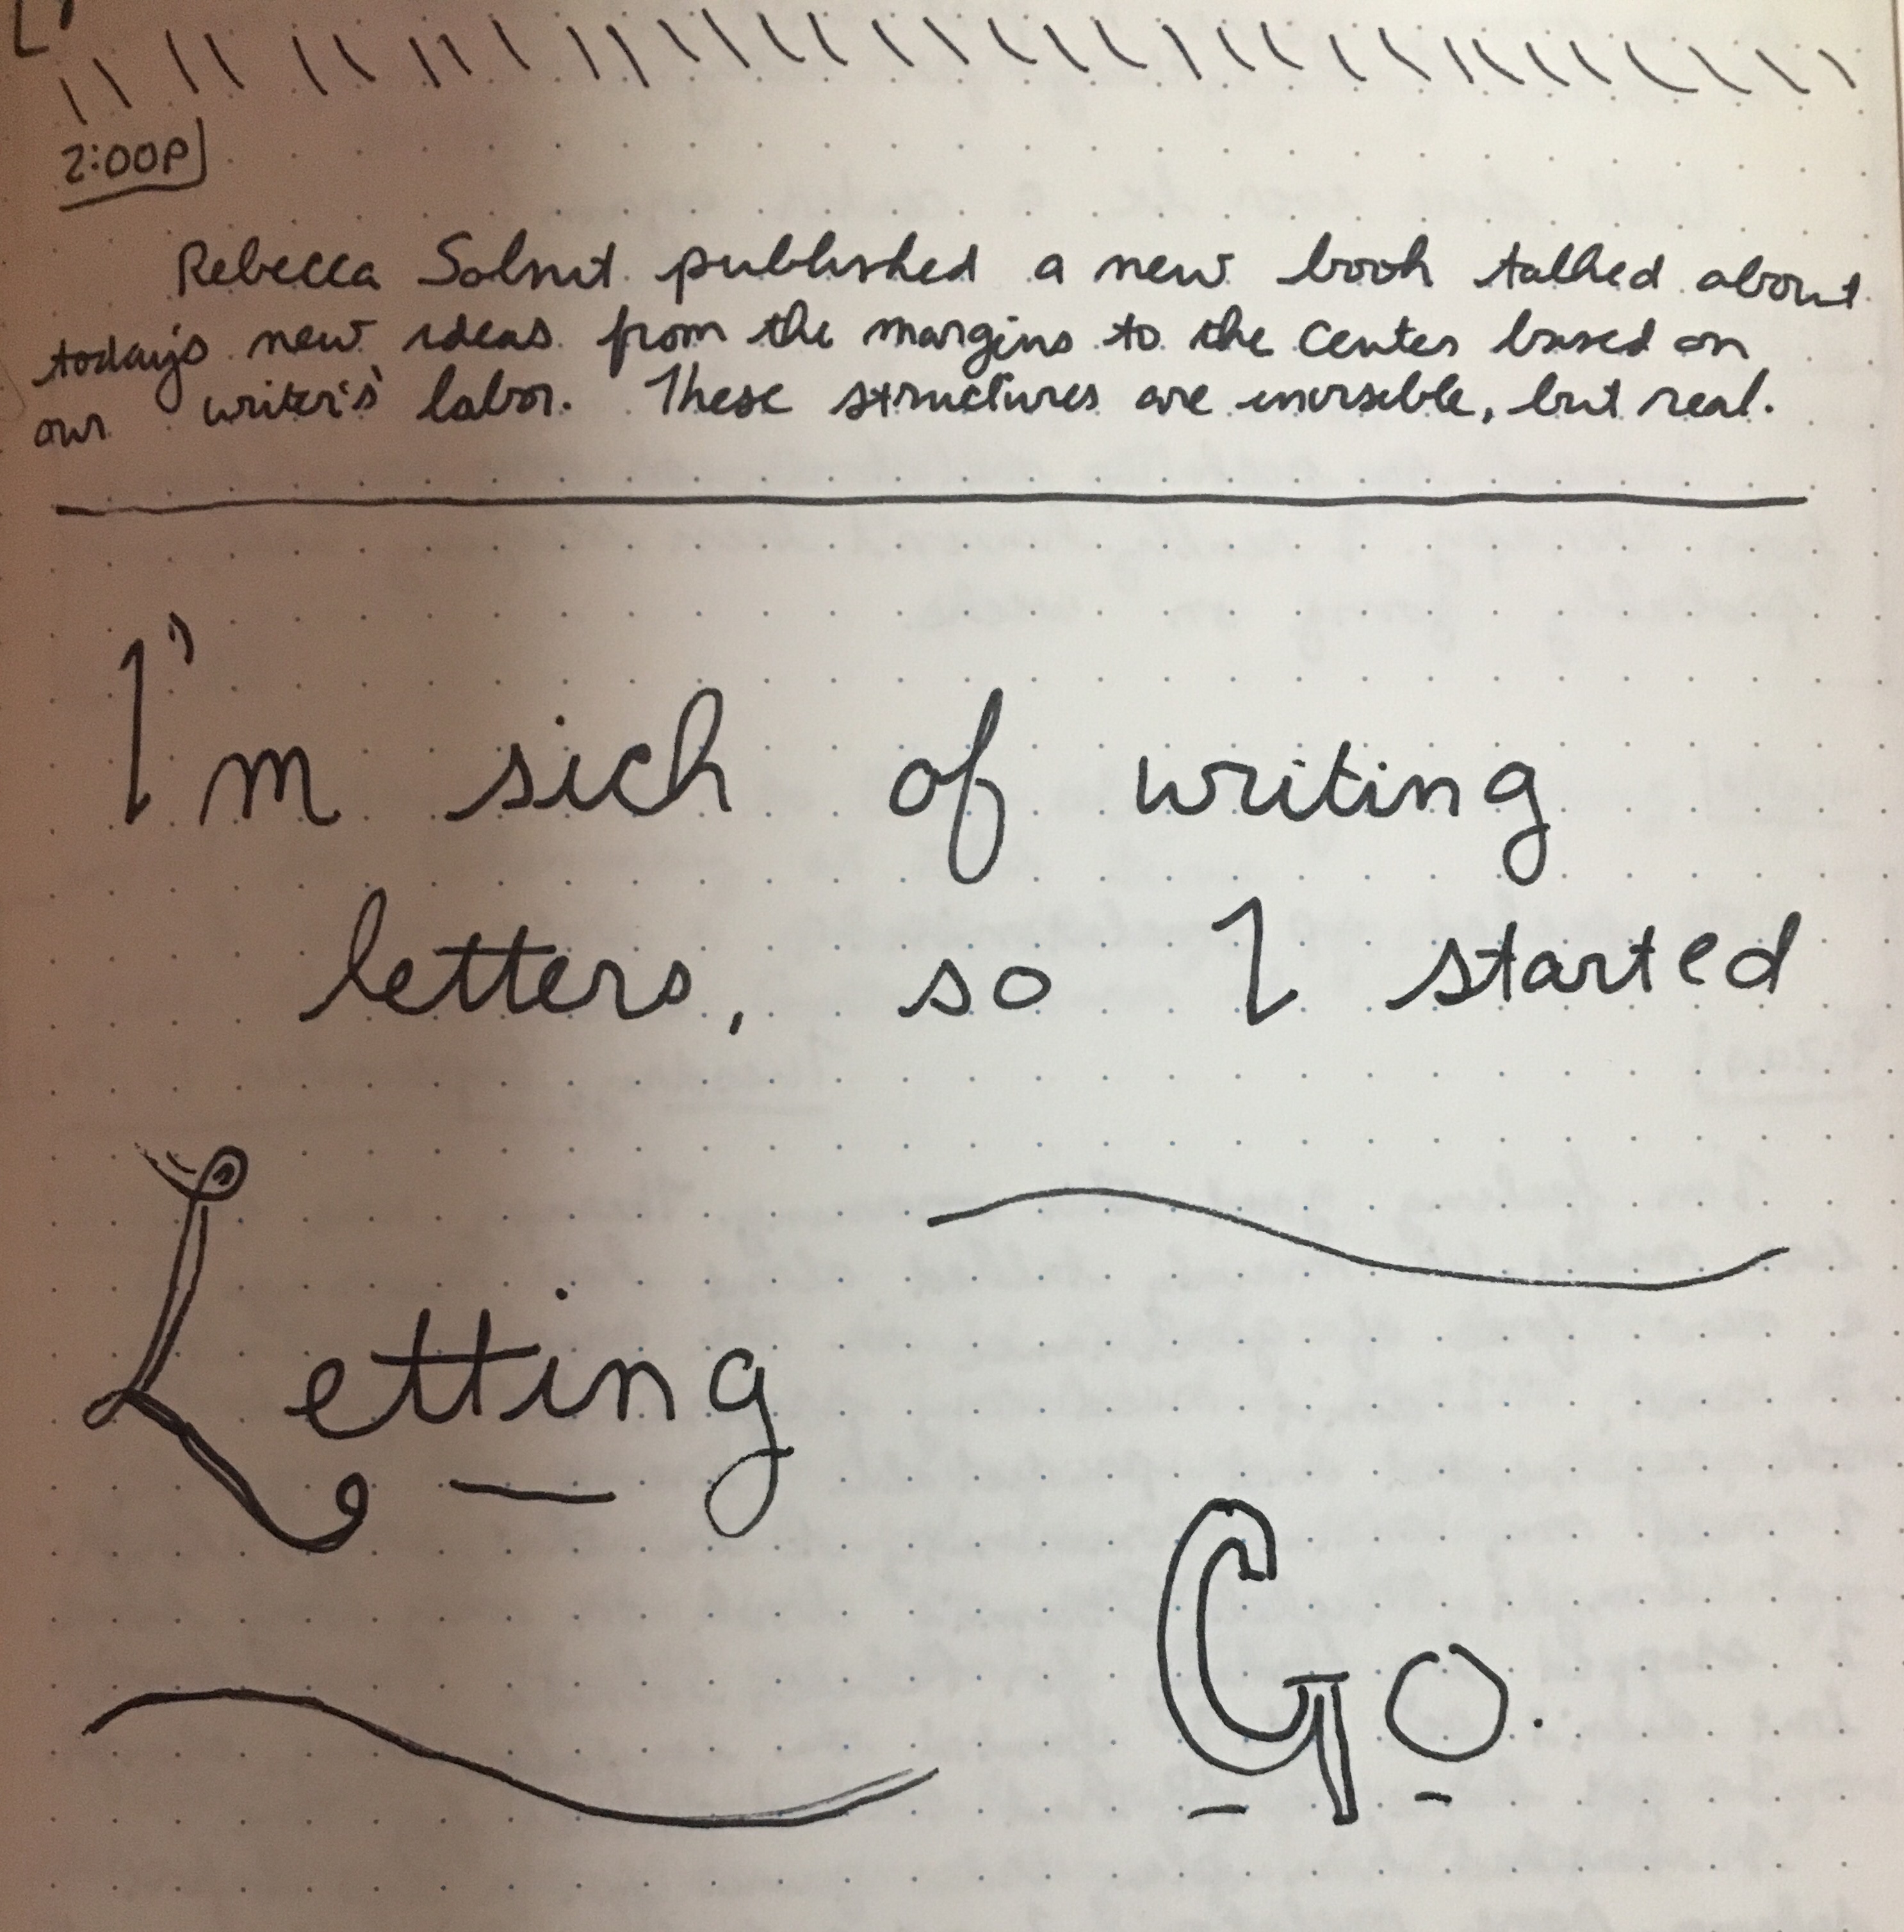 2:00P
Rebecca Solnit published a new book talked about
today's new ideas from the margins to the center based on
our writer's labor. These structures are invisible, but real.
I'm sick of writing
letters, so I started
Letting
Go.